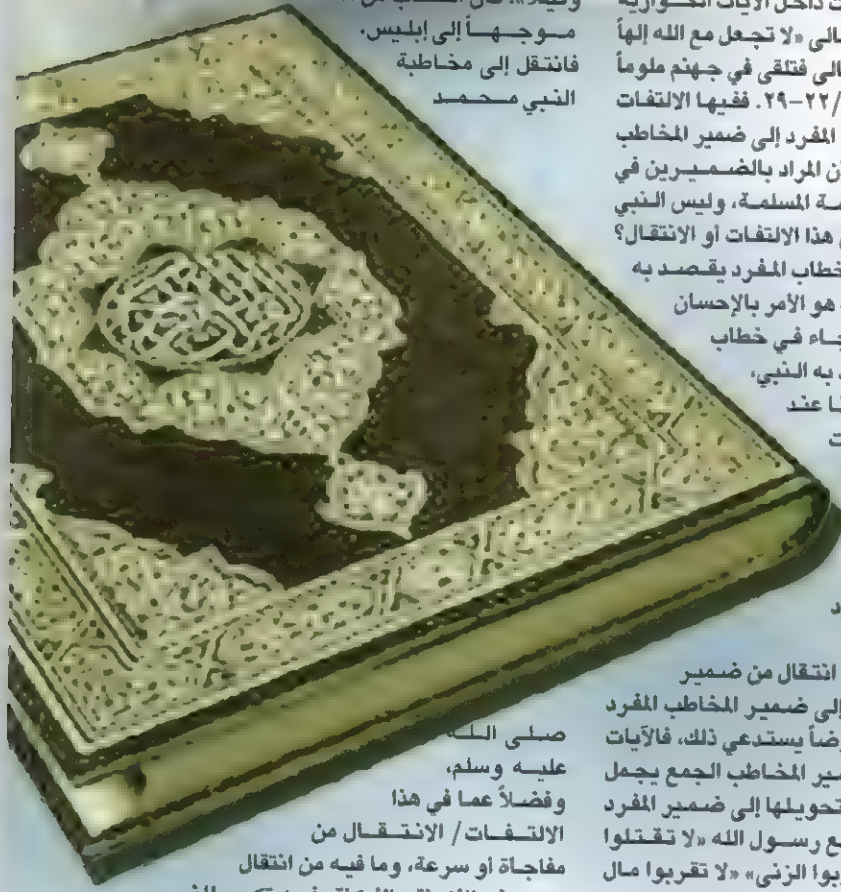 ت داخل الآيات الحوارية
الى «لا تجعل مع الله إلهاً
الى فتلقى في جهنم ملوماً
/٢٢-٢٩. ففيها الالتفات
المفرد إلى ضمير المخاطب
ن المراد بالضميرين في
ـة المسلمة، وليس النبي
هذا الالتفات أو الانتقال؟
خطاب المفرد يقصد به
هو الأمر بالإحسان
جاء في خطاب
به النبي،
ـا عند
ت
د
انتقال من ضمير
إلى ضمير المخاطب المفرد
رضاً يستدعي ذلك، فالآيات
مير المخاطب الجمع يجمل
تحويلها إلى ضمير المفرد
ع رسول الله «لا تقتلوا
ربوا الزنى» «لا تقربوا مال
موجهاً إلى إبليس.
فانتقل إلى مخاطبة
النبي محمد
صلى الله
عليه وسلم،
وفضلاً عما في هذا
الالتفات/ الانتقال من
مفاجأة أو سرعة، وما فيه من انتقال